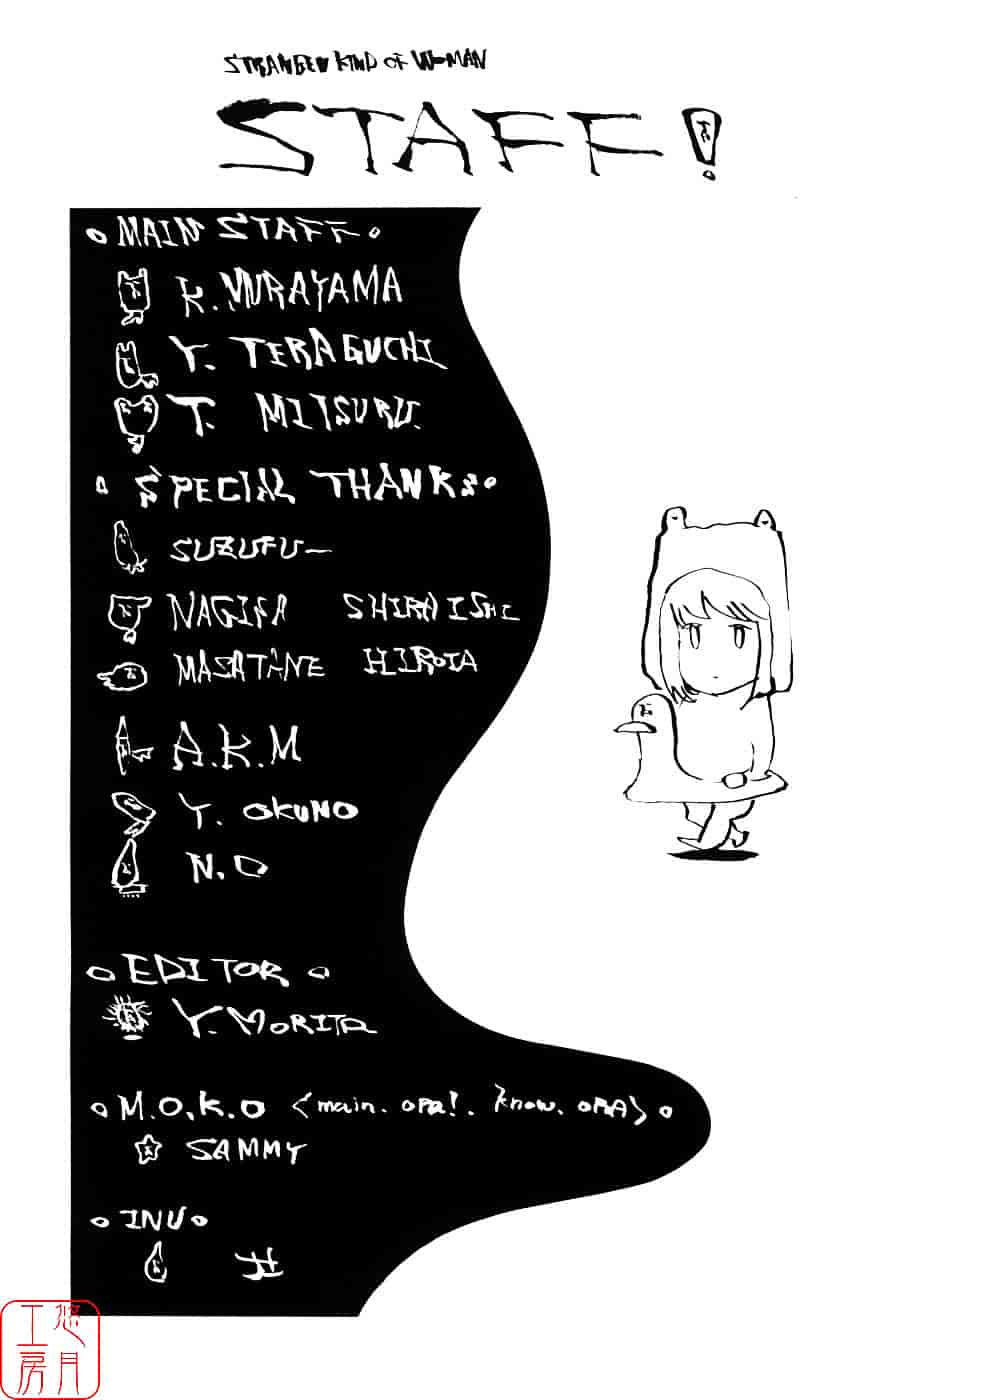 STRANGE KIND OF WOMAN
STAFF!
MAIN STAFF
K. MURAYAMA
Y. TERAGUCHI
T. MITSURU.
SPECIAL THANKS
SUZUFU—
NAGISA SHIRAISHI
MASATANE HIROTA
A.K.M
Y. OKUNO
N.O
EDITOR
Y. MORITA
M.O.K.O <main. OPA!. know. OPA>
SAMMY
INU
悠月工房